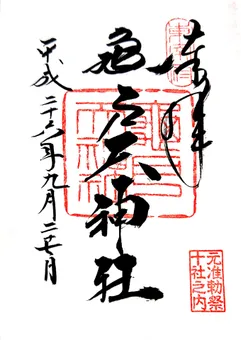 奉拝
亀戸天神社
平成二十六年九月二十七日
元准勅祭
十社之内